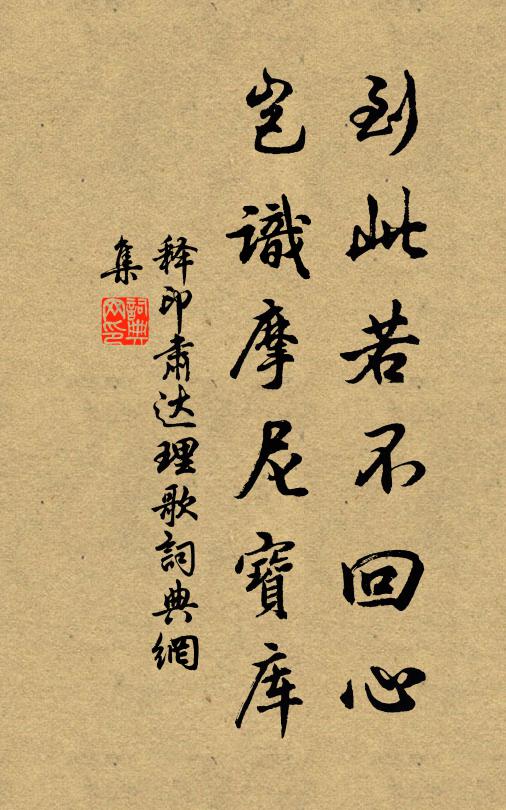 到此若不回心
岂識摩尼寶库
释印肃达理歌詞典網
集
詞典
网印